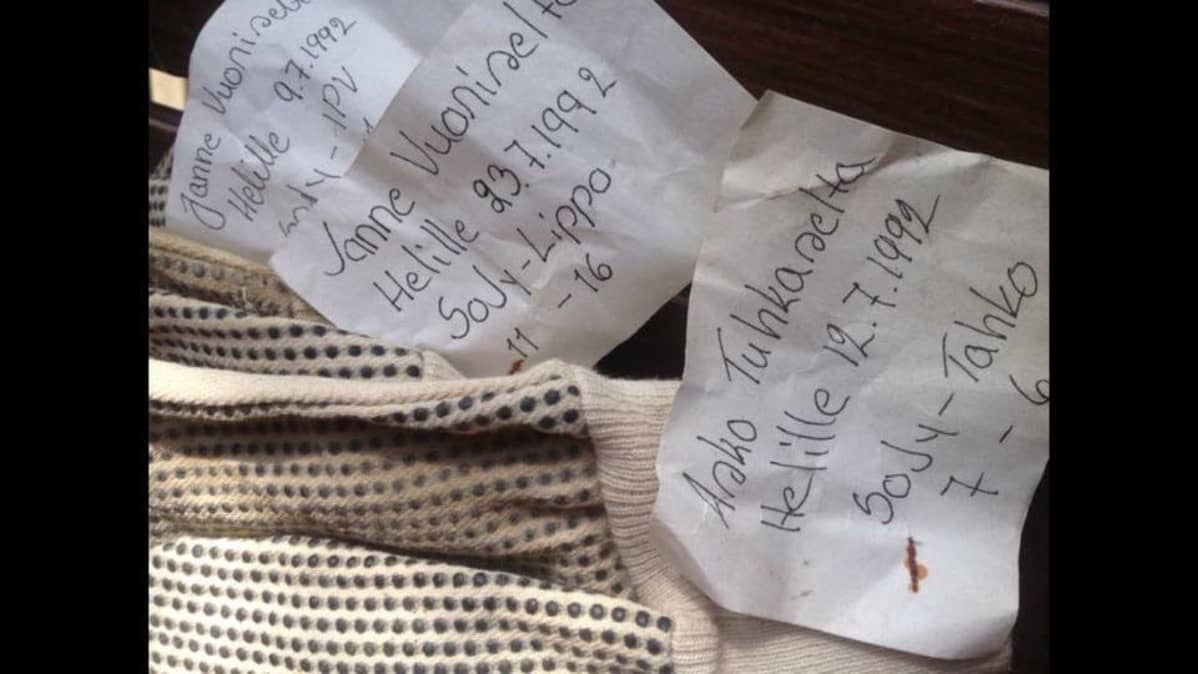 Janne
Helille 9.7.1992
- IPV
Janne Vuoriselta
Helille 23.7.1992
SoJy-Lippo
11 - 16
Asko Tuhkaselta
Helille 12.7.1992
SoJy-Tahko
7 - 6